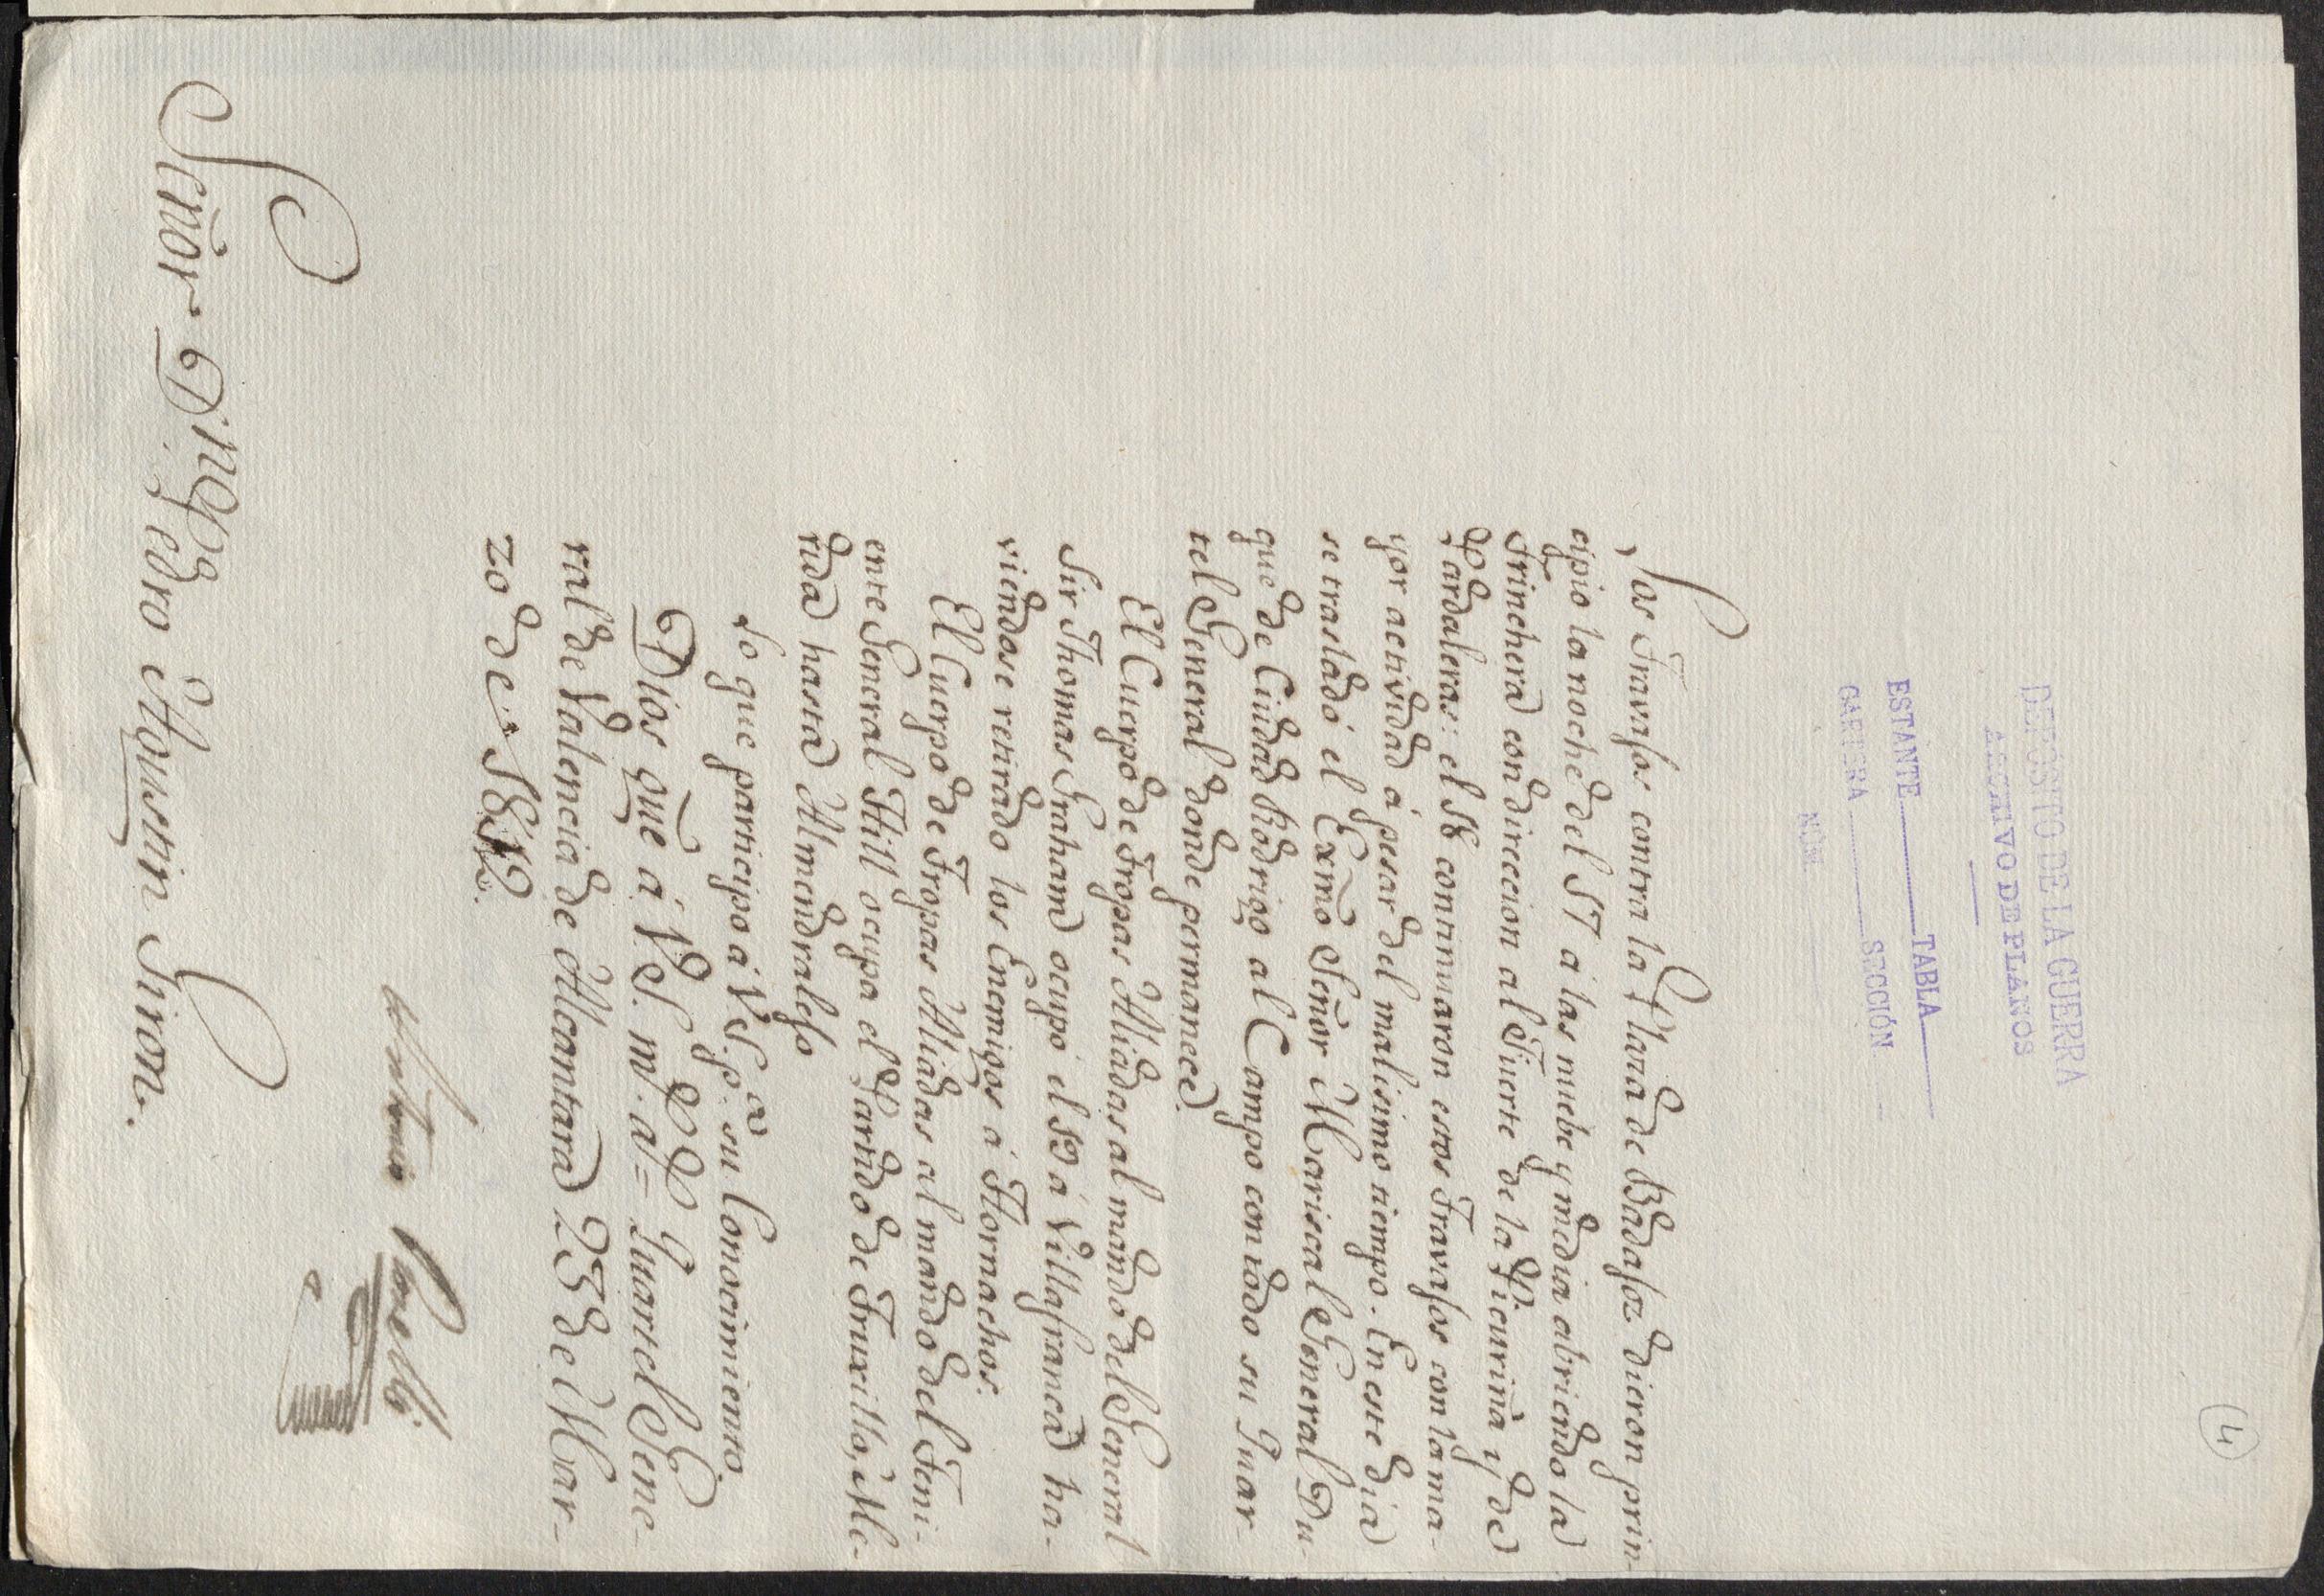 4
DEPÓSITO DE LA GUERRA
ARCHIVO DE PLANOS
ESTANTE TABLA
CARTERA SECCIÓN
NÚM
Los Travajos contra la Plaza de Badajoz dieron prin-
cipio la noche del 17 á las nuebe y media abriendo la
Trinchera con direccion al Fuerte de la Picuriña y de
Pardaleras: el 18 continuaron estos Travajos con la ma-
yor actividad á pesar del malisimo tiempo. En este dia
se trasladó el Exm̃o Señor Mariscal General Du-
que de Ciudad Rodrigo al Campo con todo su Quar-
tel General donde permanece.
El Cuerpo de Tropas Aliadas al mando del General
Sir Thomas Graham ocupó el 19 á Villafranca ha-
viendose retirado los Enemigos á Hornachos.
El Cuerpo de Tropas Aliadas al mando del Teni-
ente General Hill ocupa el Partido de Truxillo, Me-
rida hasta Almendralejo
Lo que participo á V.S. p.ª su Conocimiento.
Dios gũe á V.S. m.s a.s = Quartel Gene-
ral de Valencia de Alcantara 23 de Mar-
zo de 1812.
Antonio
Señor D.n Pedro Agustin Giron.